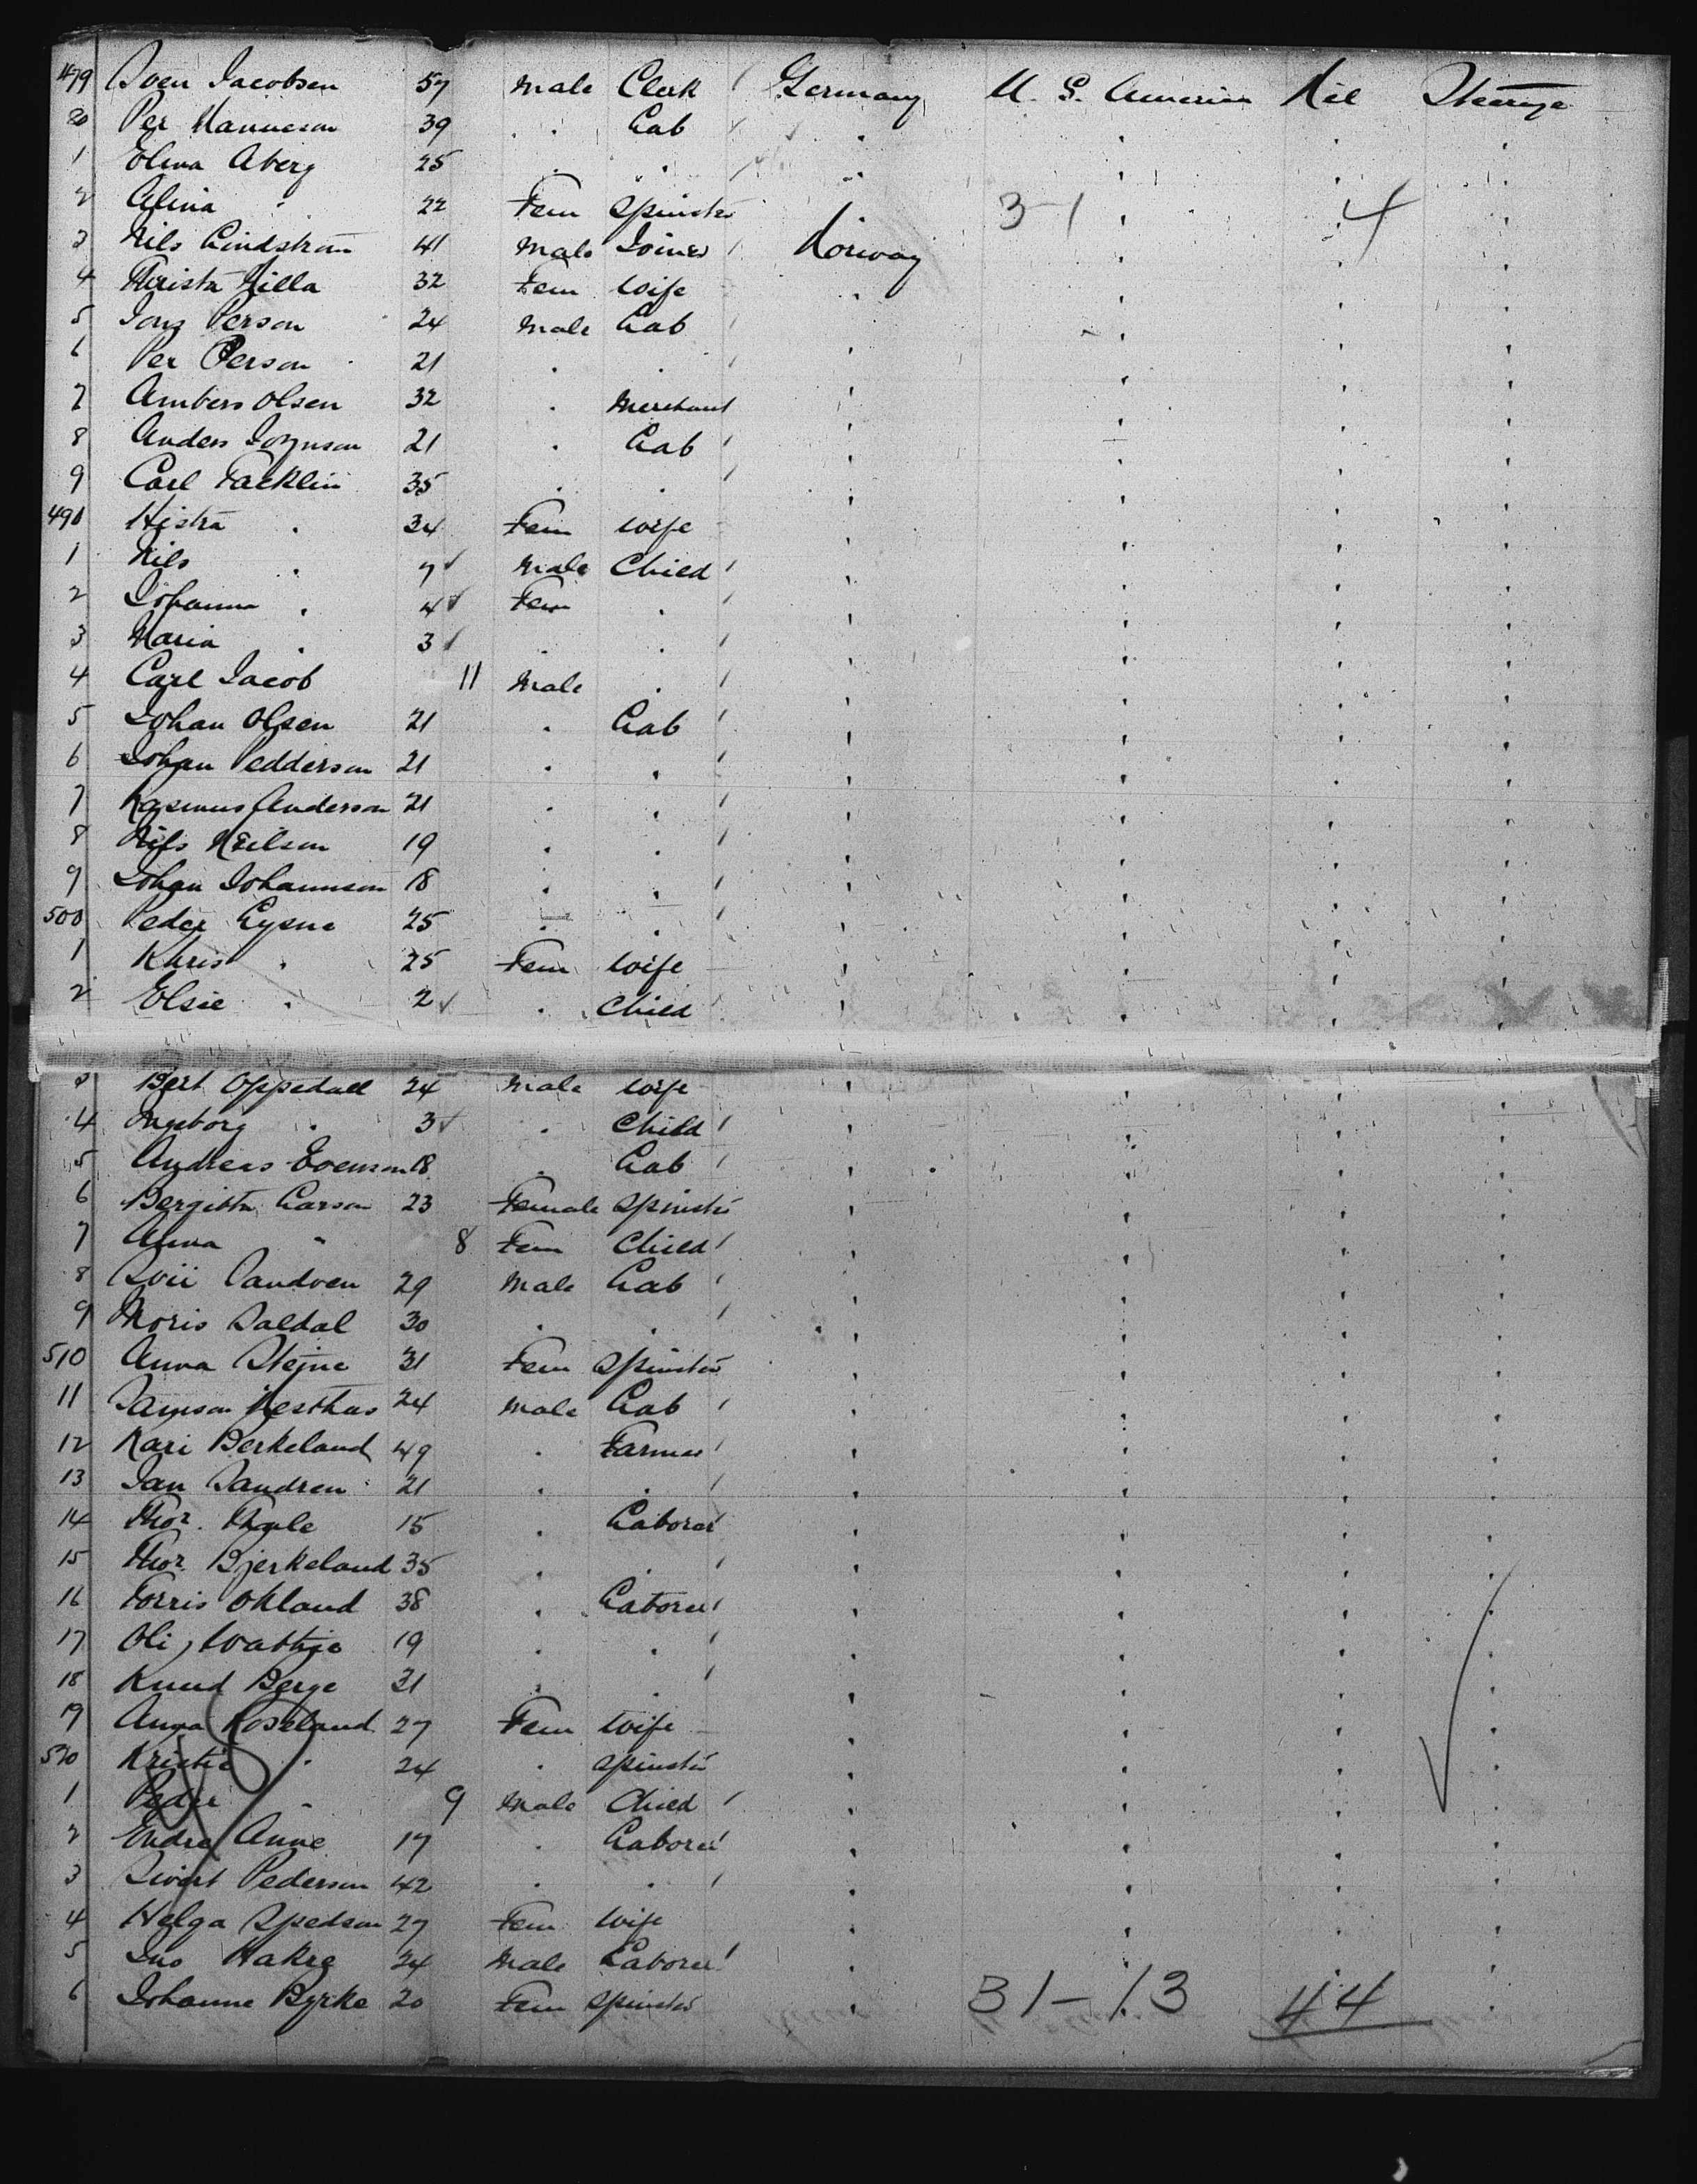 479 Sven Jacobsen 57 Male Clerk Germany U. S. America Nil Steerage
80 Per Hanneson 39 " " Lab "
1 Elina Aberg 25 " "
2 Alina " 22 Fem Spinster 3-1 4
3 Nils Lindstrom 41 Male Joiner Norway
4 Khrista Nilla 32 Fem Wife
5 Jons Person 24 Male Lab
6 Per Person 21 " "
7 Ambers Olsen 32 " Merchant
8 Anders Johnson 21 " Lab
9 Carl Facklin 35 " "
490 Histra " 34 Fem Wife
1 Nils " 7 Male Child
2 Johanna " 4 Fem "
3 Maria " 3 " "
4 Carl Jacob 11 Male "
5 Johan Olsen 21 " Lab
6 Johan Pedderson 21 " "
7 Rasmus Anderson 21 " "
8 Nils Neilson 19 " "
9 Johan Johannson 18 " "
500 Peder Lysne 25 " "
1 Khris " 25 Fem Wife
2 Elsie " 2 " Child
3 Bert Oppedall 24 Male Wife
4 Ingeborg " 3 " Child
5 Andreas Evenson 18 " Lab
6 Bergitta Larson 23 Female Spinster
7 Anna " 8 Fem Child
8 Sandven 29 Male Lab
9 Noris Saldal 30 " "
510 Anna Steine 31 Fem Spinster
11 Samson Nesthus 24 Male Lab
12 Kari Berkeland 49 " Farmer
13 Jan Sandren 21 " "
14 Thor. 15 " Laborer
15 Thor. Bjerkeland 35 " "
16 Torris Okland 38 " Laborer
17 Oli 19 " "
18 Knud Berge 31 " "
19 Anna Roseland 27 Fem Wife
520 Kristie " 24 " Spinster
1 Peder " 9 Male Child
2 Endre Anne 17 " Laborer
3 Sivert Pederson 42 " "
4 Helga Spedson 27 Fem Wife
5 Jno Hakre 24 Male Laborer
6 Johanne Byrke 20 Fem Spinster 31-13 44